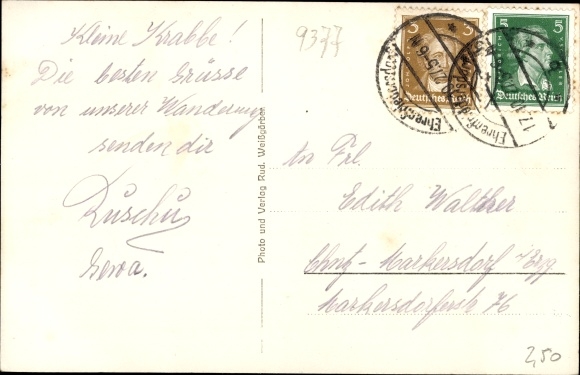 Kleine Krabbe!
Die besten Grüsse
von unserer Wanderung
senden dir
Gewa.
9377
3 3
Deutsches Reich
5 5
Deutsches Reich
Photo und Verlag Rud. Weißgärber
An Frl.
Edith Walther
Chntz-Markersdorf i/Erzg.
Markersdorferstr 76
2,50